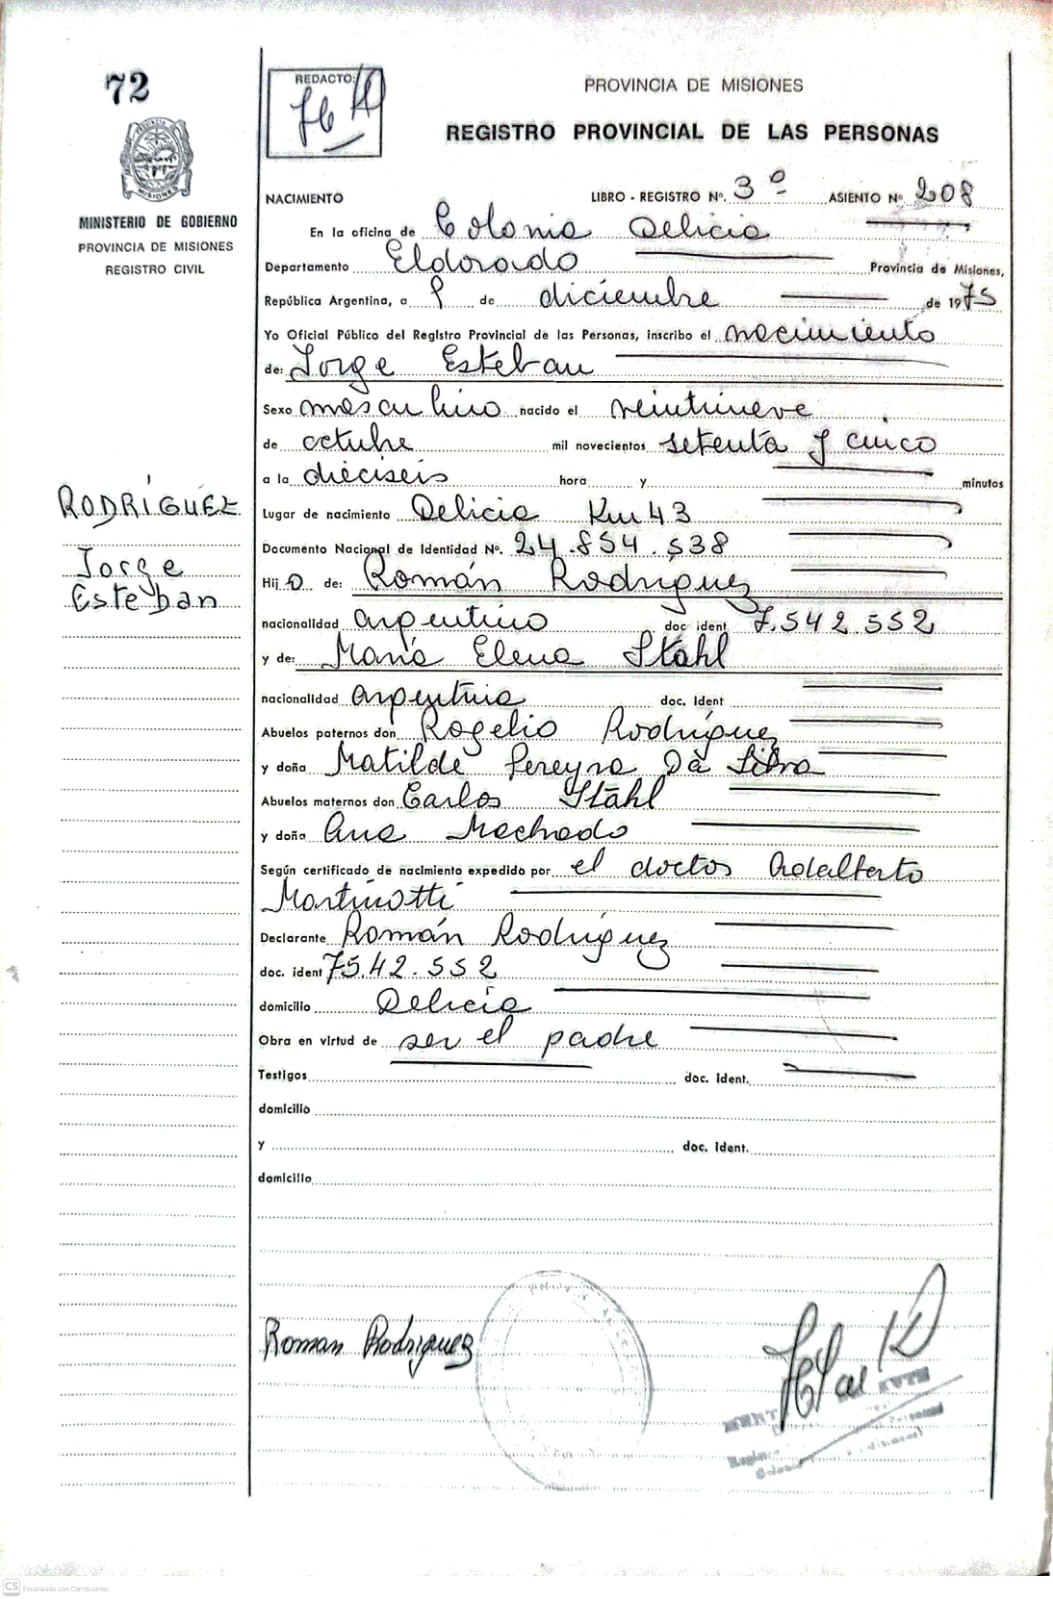 72
REDACTO:
PROVINCIA DE MISIONES
REGISTRO PROVINCIAL DE LAS PERSONAS
MISIONES
MINISTERIO DE GOBIERNO
PROVINCIA DE MISIONES
REGISTRO CIVIL
NACIMIENTO LIBRO - REGISTRO Nº. 3º ASIENTO Nº 208
En la oficina de Colonia Delicia
Departamento Eldorado Provincia de Misiones,
República Argentina, a 9 de diciembre de 1975
Yo Oficial Público del Registro Provincial de las Personas, inscribo el nacimiento
de: Jorge Esteban
Sexo masculino nacido el veintinueve
de octubre mil novecientos setenta y cinco
a la dieciseis hora y minutos
RODRÍGUEZ
Jorge
Esteban
Lugar de nacimiento Delicia Km 43
Documento Nacional de Identidad Nº. 24.854.538
Hijo de: Román Rodríguez
nacionalidad argentino doc ident 7.542.552
y de: María Elena Stahl
nacionalidad argentina doc. Ident
Abuelos paternos don Rogelio Rodríguez
y doña Matilde Pereyra Da Silva
Abuelos maternos don Carlos Stahl
y doña Ana Machado
Según certificado de nacimiento expedido por el doctos Adalberto
Martinotti
Declarante Román Rodríguez
doc. ident 75.42.552
domicilio Delicia
Obra en virtud de ser el padre
Testigos doc. Ident.
domicilio
y doc. Ident.
domicilio
Roman Rodriguez
CS Escaneado con CamScanner